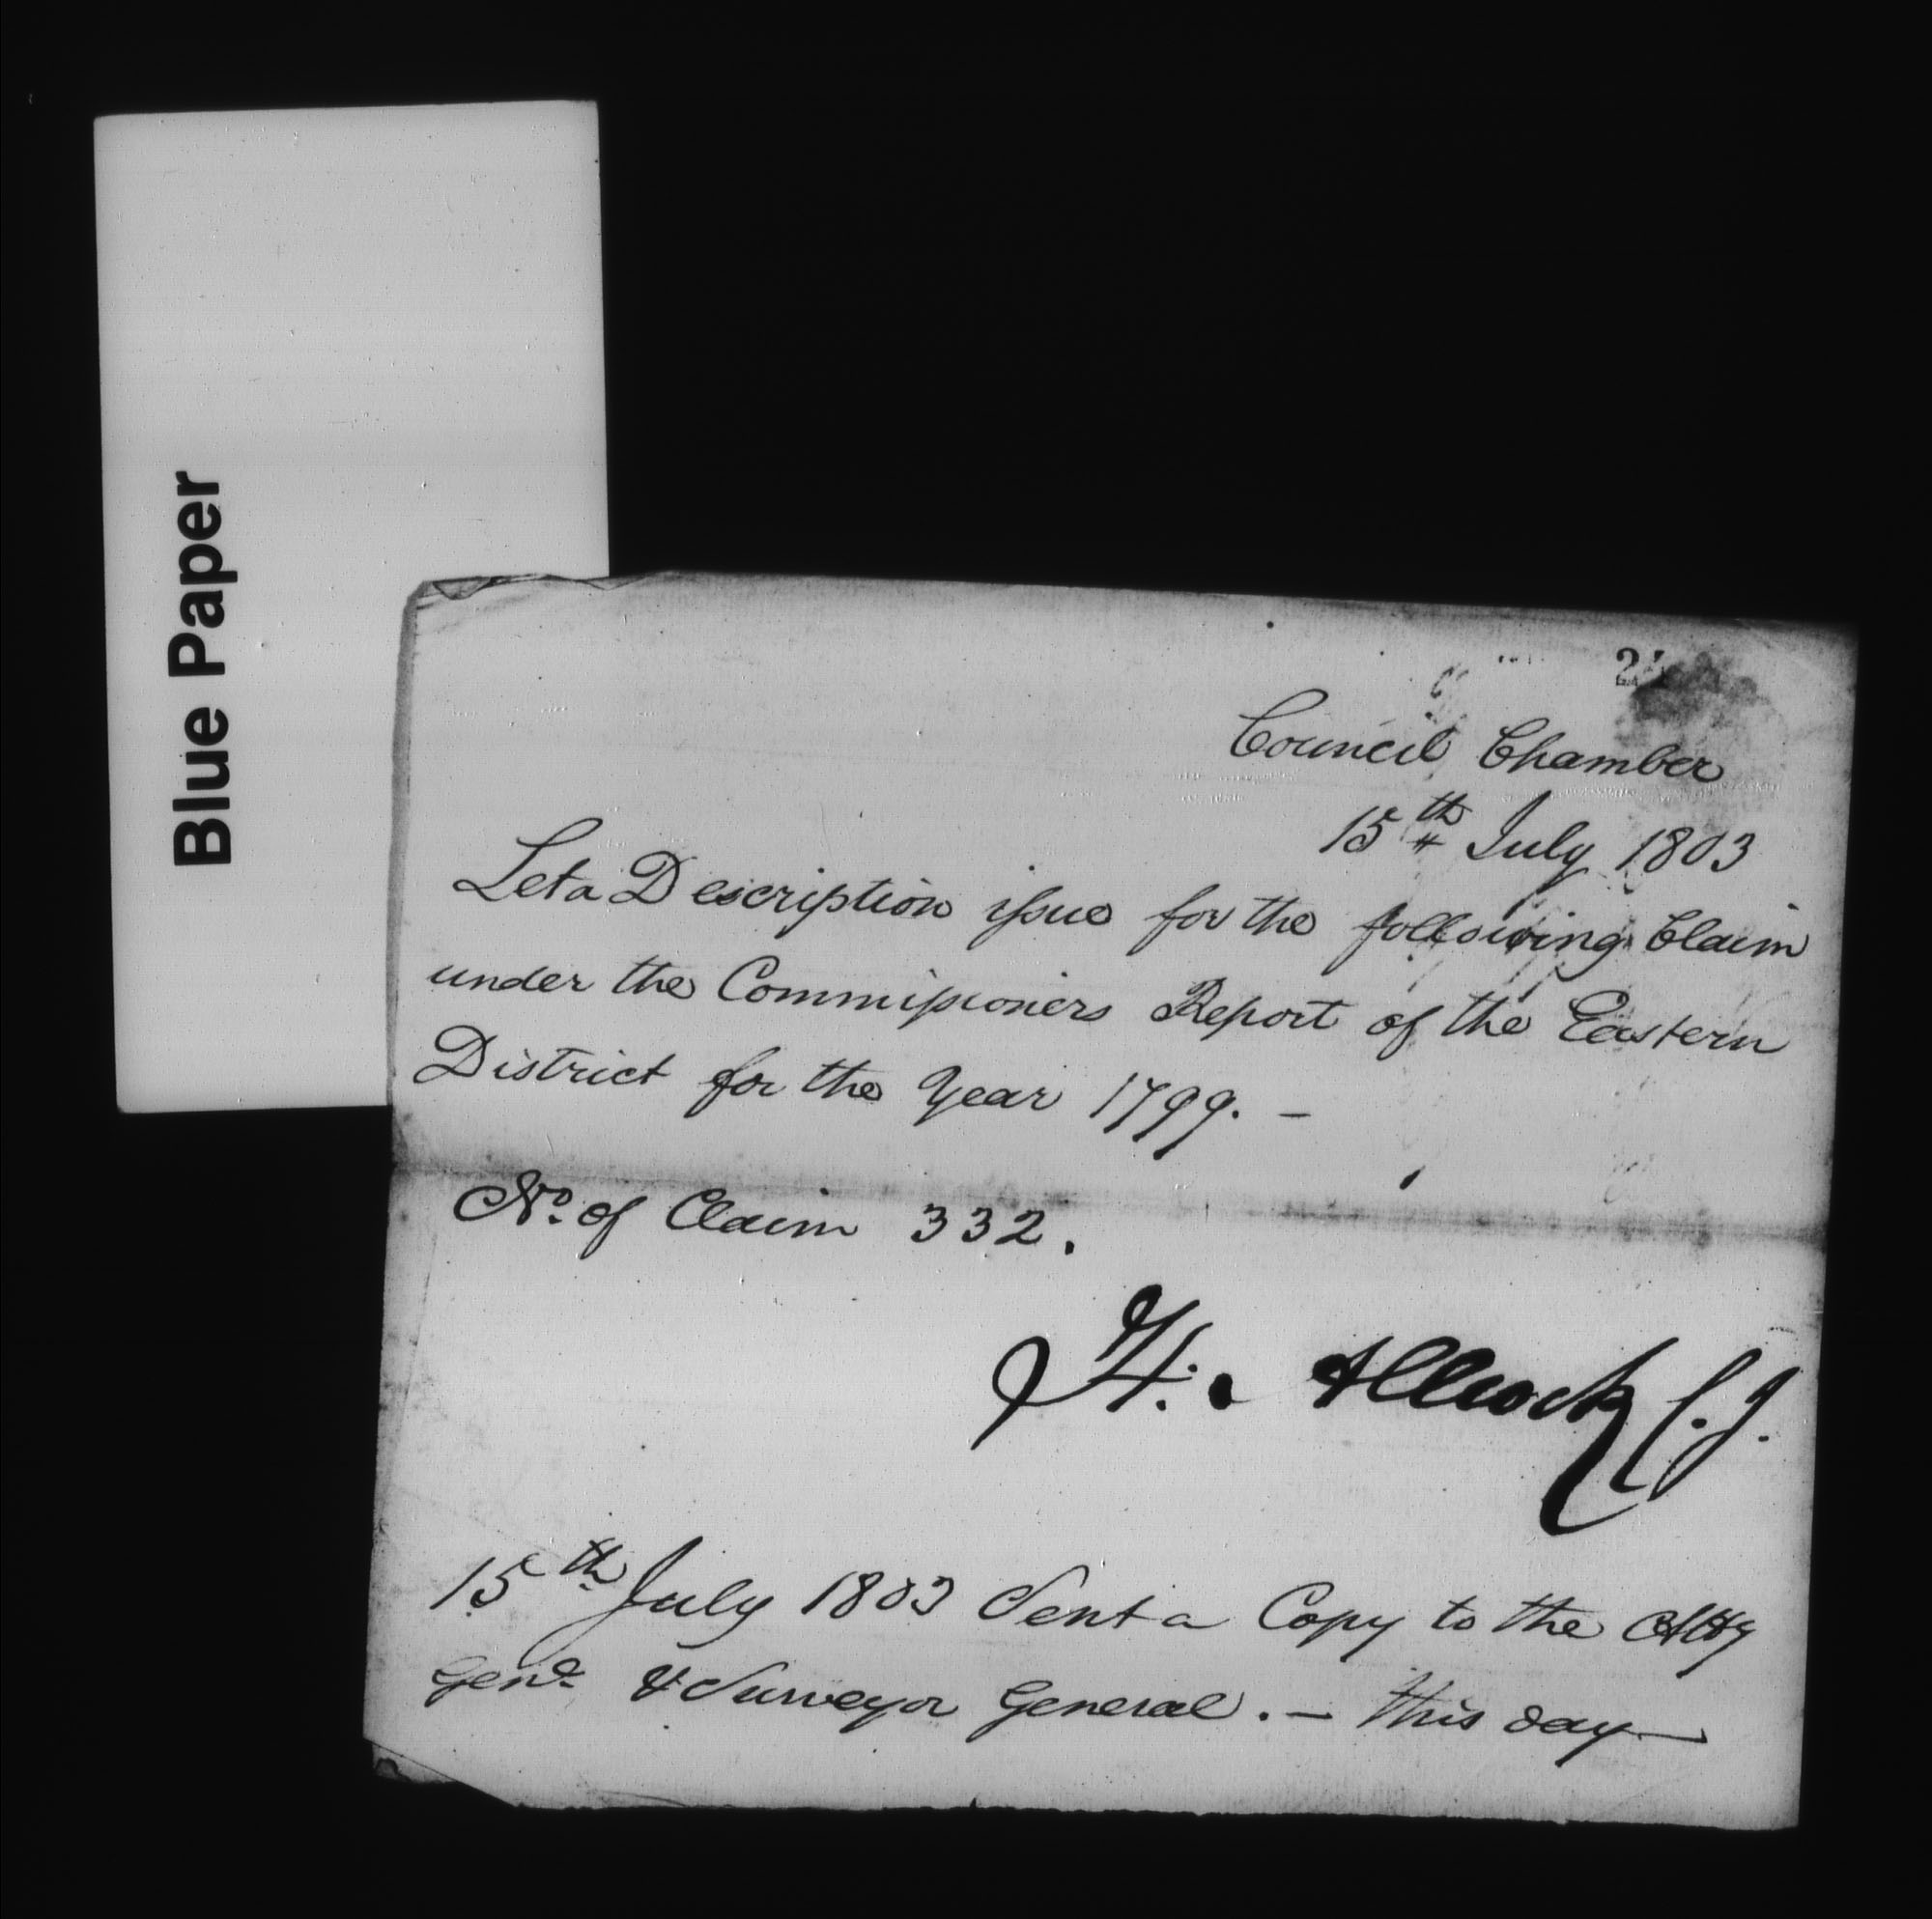 Blue Paper
Council Chamber
15th July 1803
Let a Description issue for the following Claim
under the Commissioners Report of the Eastern
District for the Year 1799. –
No. of Claim 332.
H. Allcock C.J.
15th July 1803 Sent a Copy to the Atty
Genl & Surveyor General. – this day